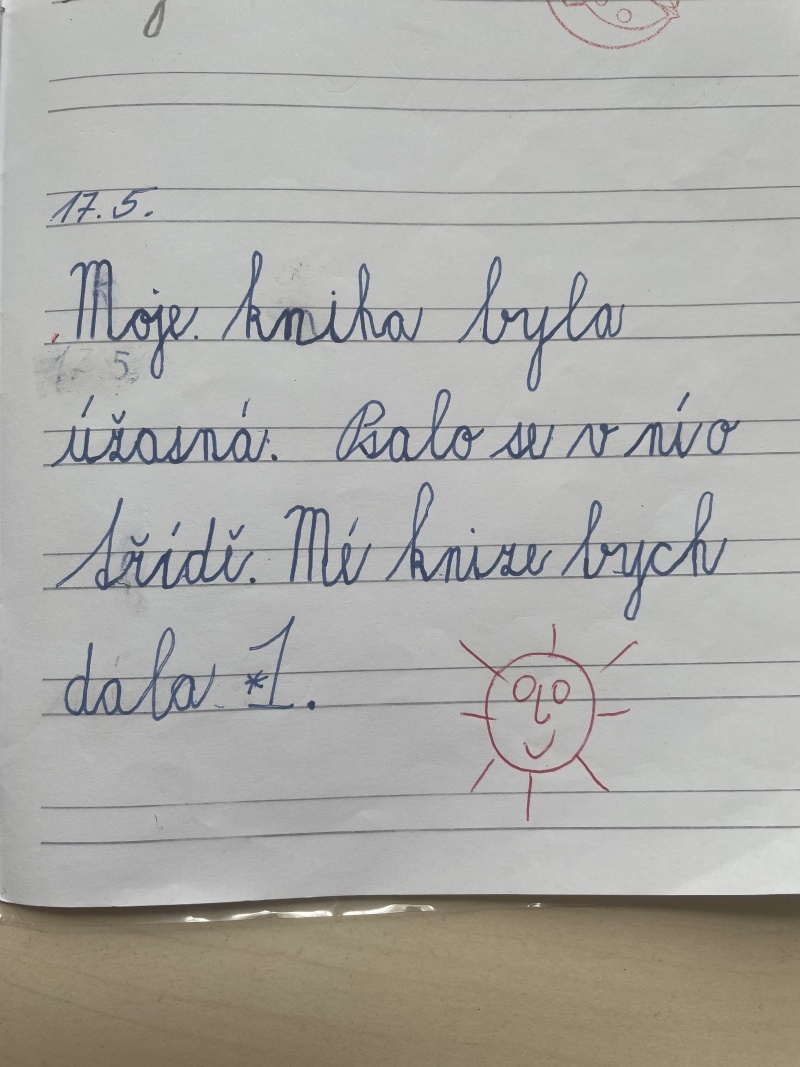 17. 5.
Moje kniha byla
úžasná. Psalo se v ní o
třídě. Mé knize bych
dala *1.